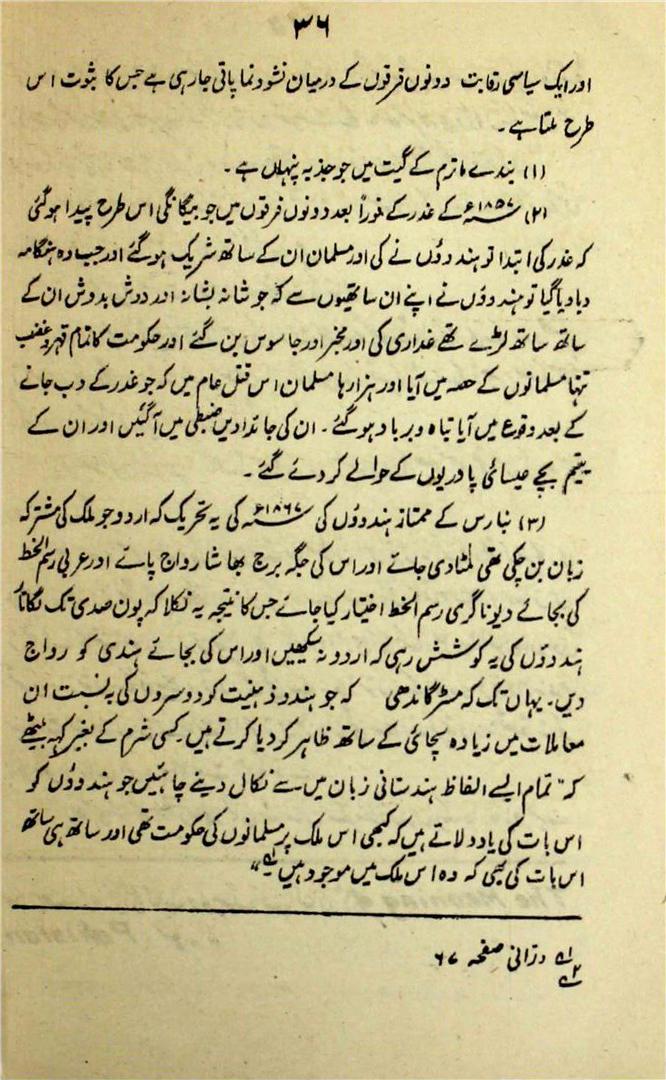 ۳۶
اور ایک سیاسی رقابت دونوں فرقوں کے درمیان نشو ونما پاتی جارہی ہے جس کا ثبوت اس
طرح ملتا ہے۔
(۱) بندے ماترم کے گیت میں جو جذبہ پنہاں ہے۔
(۲) ۱۸۵۷ء کے غدر کے فوراً بعد دونوں فرقوں میں جو بیگانگی اس طرح پیدا ہوگئی
کہ غدر کی ابتدا تو ہندوؤں نے کی اور مسلمان ان کے ساتھ شریک ہوگئے اور جب وہ ہنگامہ
دبا دیا گیا تو ہندوؤں نے اپنے ان ساتھیوں سے کہ جو شانہ بشانہ اور دوش بدوش ان کے
ساتھ ساتھ لڑے تھے غداری کی اور مخبر اور جاسوس بن گئے اور حکومت کا تمام قہر و غضب
تنہا مسلمانوں کے حصہ میں آیا اور ہزارہا مسلمان اس قتل عام میں کہ جو غدر کے دب جانے
کے بعد وقوع میں آیا تباہ و برباد ہوگئے۔ ان کی جائدادیں ضبطی میں آگئیں اور ان کے
یتیم بچے عیسائی پادریوں کے حوالے کر دئے گئے۔
(۳) بنارس کے ممتاز ہندوؤں کی ۱۸۶۷ء کی یہ تحریک کہ اردو جو ملک کی مشترکہ
زبان بن چکی تھی مٹادی جائے اور اس کی جگہ برج بھاشا رواج پائے اور عربی رسم الخط
کی بجائے دیوناگری رسم الخط اختیار کیا جائے جس کا نتیجہ یہ نکلا کہ پون صدی تک لگاتار
ہندوؤں کی یہ کوشش رہی کہ اردو نہ سیکھیں اور اس کی بجائے ہندی کو رواج
دیں۔ یہاں تک کہ مسٹر گاندھی کہ جو ہندو ذہنیت کو دوسروں کی بہ نسبت ان
معاملات میں زیادہ سچائی کے ساتھ ظاہر کر دیا کرتے ہیں۔ کسی شرم کے بغیر کہہ بیٹھے
کہ "تمام ایسے الفاظ ہندستانی زبان میں سے نکال دینے چاہئیں جو ہندوؤں کو
اس بات کی یاد دلاتے ہیں کہ کبھی اس ملک پر مسلمانوں کی حکومت تھی اور ساتھ ہی ساتھ
اس بات کی بھی کہ وہ اس ملک میں موجود ہیں"
درانی صفحہ ۶۷